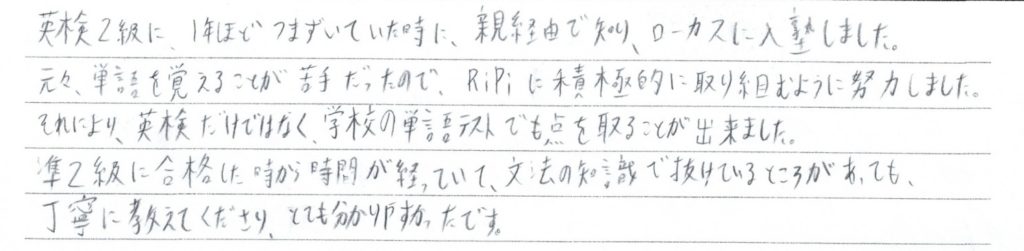 英検2級に、1年ほどつまずいていた時に、親経由で知り、ローカスに入塾しました。
元々、単語を覚えることが苦手だったので、RiPiに積極的に取り組むように努力しました。
それにより、英検だけではなく、学校の単語テストでも点を取ることが出来ました。
準2級に合格した時から時間が経っていて、文法の知識で抜けているところがあっても、
丁寧に教えてくださり、とても分かりやすかったです。